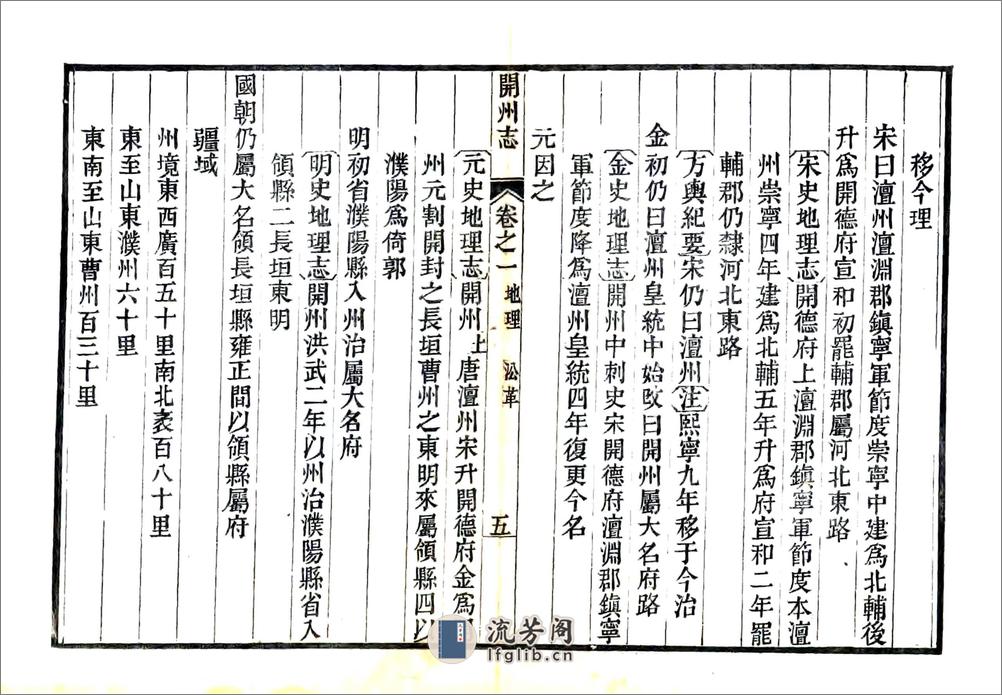 移今理
宋曰澶州澶淵郡鎮寧軍節度崇寧中建爲北輔後
升爲開德府宣和初罷輔郡屬河北東路
宋史地理志開德府上澶淵郡鎮寧軍節度本澶
州崇寧四年建爲北輔五年升爲府宣和二年罷
輔郡仍隸河北東路
方輿紀要宋仍曰澶州注熙寧九年移于今治
金初仍曰澶州皇統中始改曰開州屬大名府路
金史地理志開州中刺史宋開德府澶淵郡鎮寧
軍節度降爲澶州皇統四年復更今名
元因之
開州志 卷之一 地理 沿革 五
元史地理志開州上唐澶州宋升開德府金爲
州元割開封之長垣曹州之東明來屬領縣四以
濮陽爲倚郭
明初省濮陽縣入州治屬大名府
明史地理志開州洪武二年以州治濮陽縣省入
領縣二長垣東明
國朝仍屬大名領長垣縣雍正間以領縣屬府
疆域
州境東西廣百五十里南北袤百八十里
東至山東濮州六十里
東南至山東曹州百三十里
流芳阁
lfglib.cn